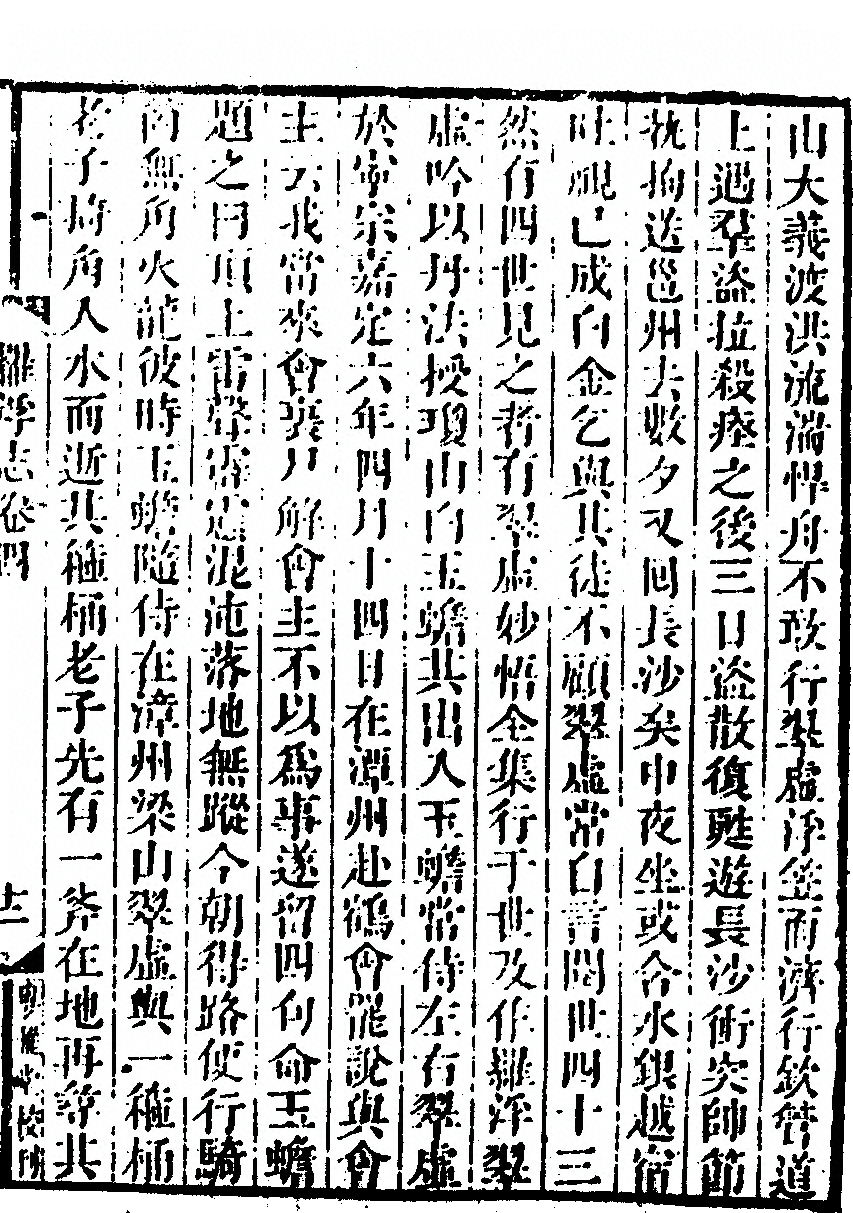 山大義渡洪流湍悍舟不敢行翠虛浮笠而濟行欽管道
上遇羣盜拉殺瘞之後三日盜散復甦遊長沙衝突帥節
執拘送邕州去數夕又回長沙矣中夜坐或含水銀越宿
吐視已成白金乞與其徒不顧翠虛常自言閱世四十三
然有四世見之者有翠虛妙悟全集行于世及作羅浮翠
虛吟以丹法授瓊山白玉蟾其出入玉蟾常侍左右翠虛
於寧宗嘉定六年四月十四日在潭州赴鶴會罷說與會
主云我當來會裏尸解會主不以為事遂留四句命玉蟾
題之曰頂上雷聲霹靂混沌落地無蹤今朝得路便行騎
箇無角火龍彼時玉蟾隨侍在漳州梁山翠虛與一箍桶
老子掎角入水而逝其箍桶老子先有一斧在地再尋其
羅浮志卷四
十二
校刊